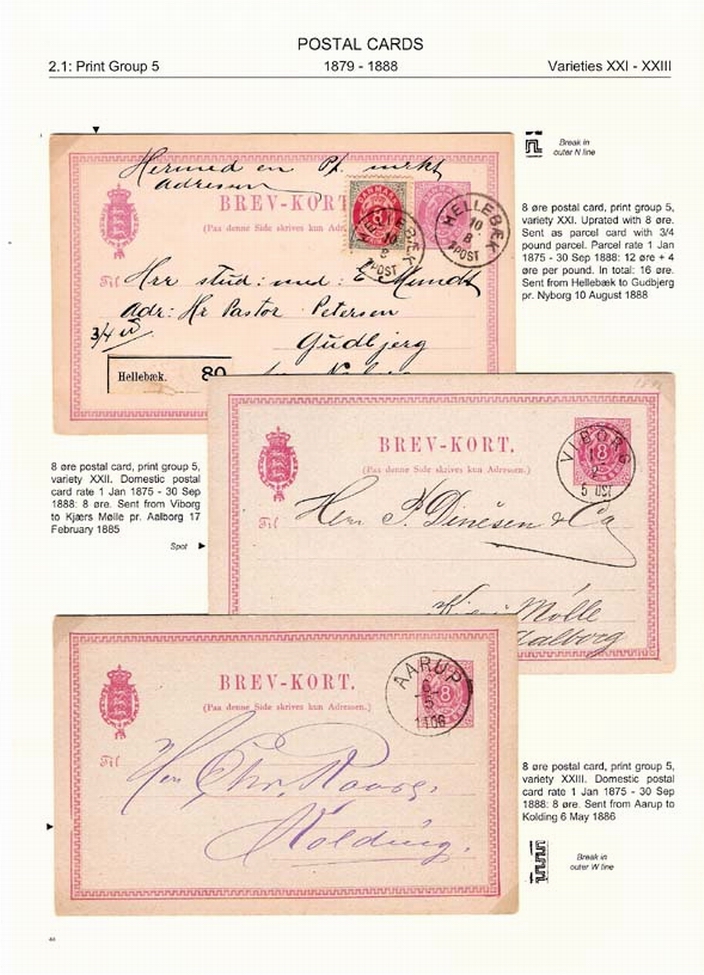 POSTAL CARDS
2.1: Print Group 5
1879 - 1888
Varieties XXI - XXIII
Break in
outer N line
Hermed en Pk. mrkt
Adressen
BREV-KORT
(Paa denne Side skrives kun Adr
DANMARK
8
HELLEBÆK
10
8
POST
HELLEBÆK
10
8
POST
Til Hrr stud: med: E. Mundt
Adr: Hr Pastor Petersen
Gudbjerg
3/4
Hellebæk. 80
8 øre postal card, print group 5,
variety XXI. Uprated with 8 øre.
Sent as parcel card with 3/4
pound parcel. Parcel rate 1 Jan
1875 - 30 Sep 1888: 12 øre + 4
øre per pound. In total: 16 øre.
Sent from Hellebæk to Gudbjerg
pr. Nyborg 10 August 1888
BREV-KORT.
(Paa denne Side skrives kun Adressen.)
VIBORG
8
5 OST
Til Herr P. Dinesen & Co
Mølle
Aalborg
8 øre postal card, print group 5,
variety XXII. Domestic postal
card rate 1 Jan 1875 - 30 Sep
1888: 8 øre. Sent from Viborg
to Kjærs Mølle pr. Aalborg 17
February 1885
Spot
BREV-KORT.
(Paa denne Side skrives kun Adressen.)
AARUP
6
5
8
Til Herr Chr.
Kolding.
8 øre postal card, print group 5,
variety XXIII. Domestic postal
card rate 1 Jan 1875 - 30 Sep
1888: 8 øre. Sent from Aarup to
Kolding 6 May 1886
Break in
outer W line